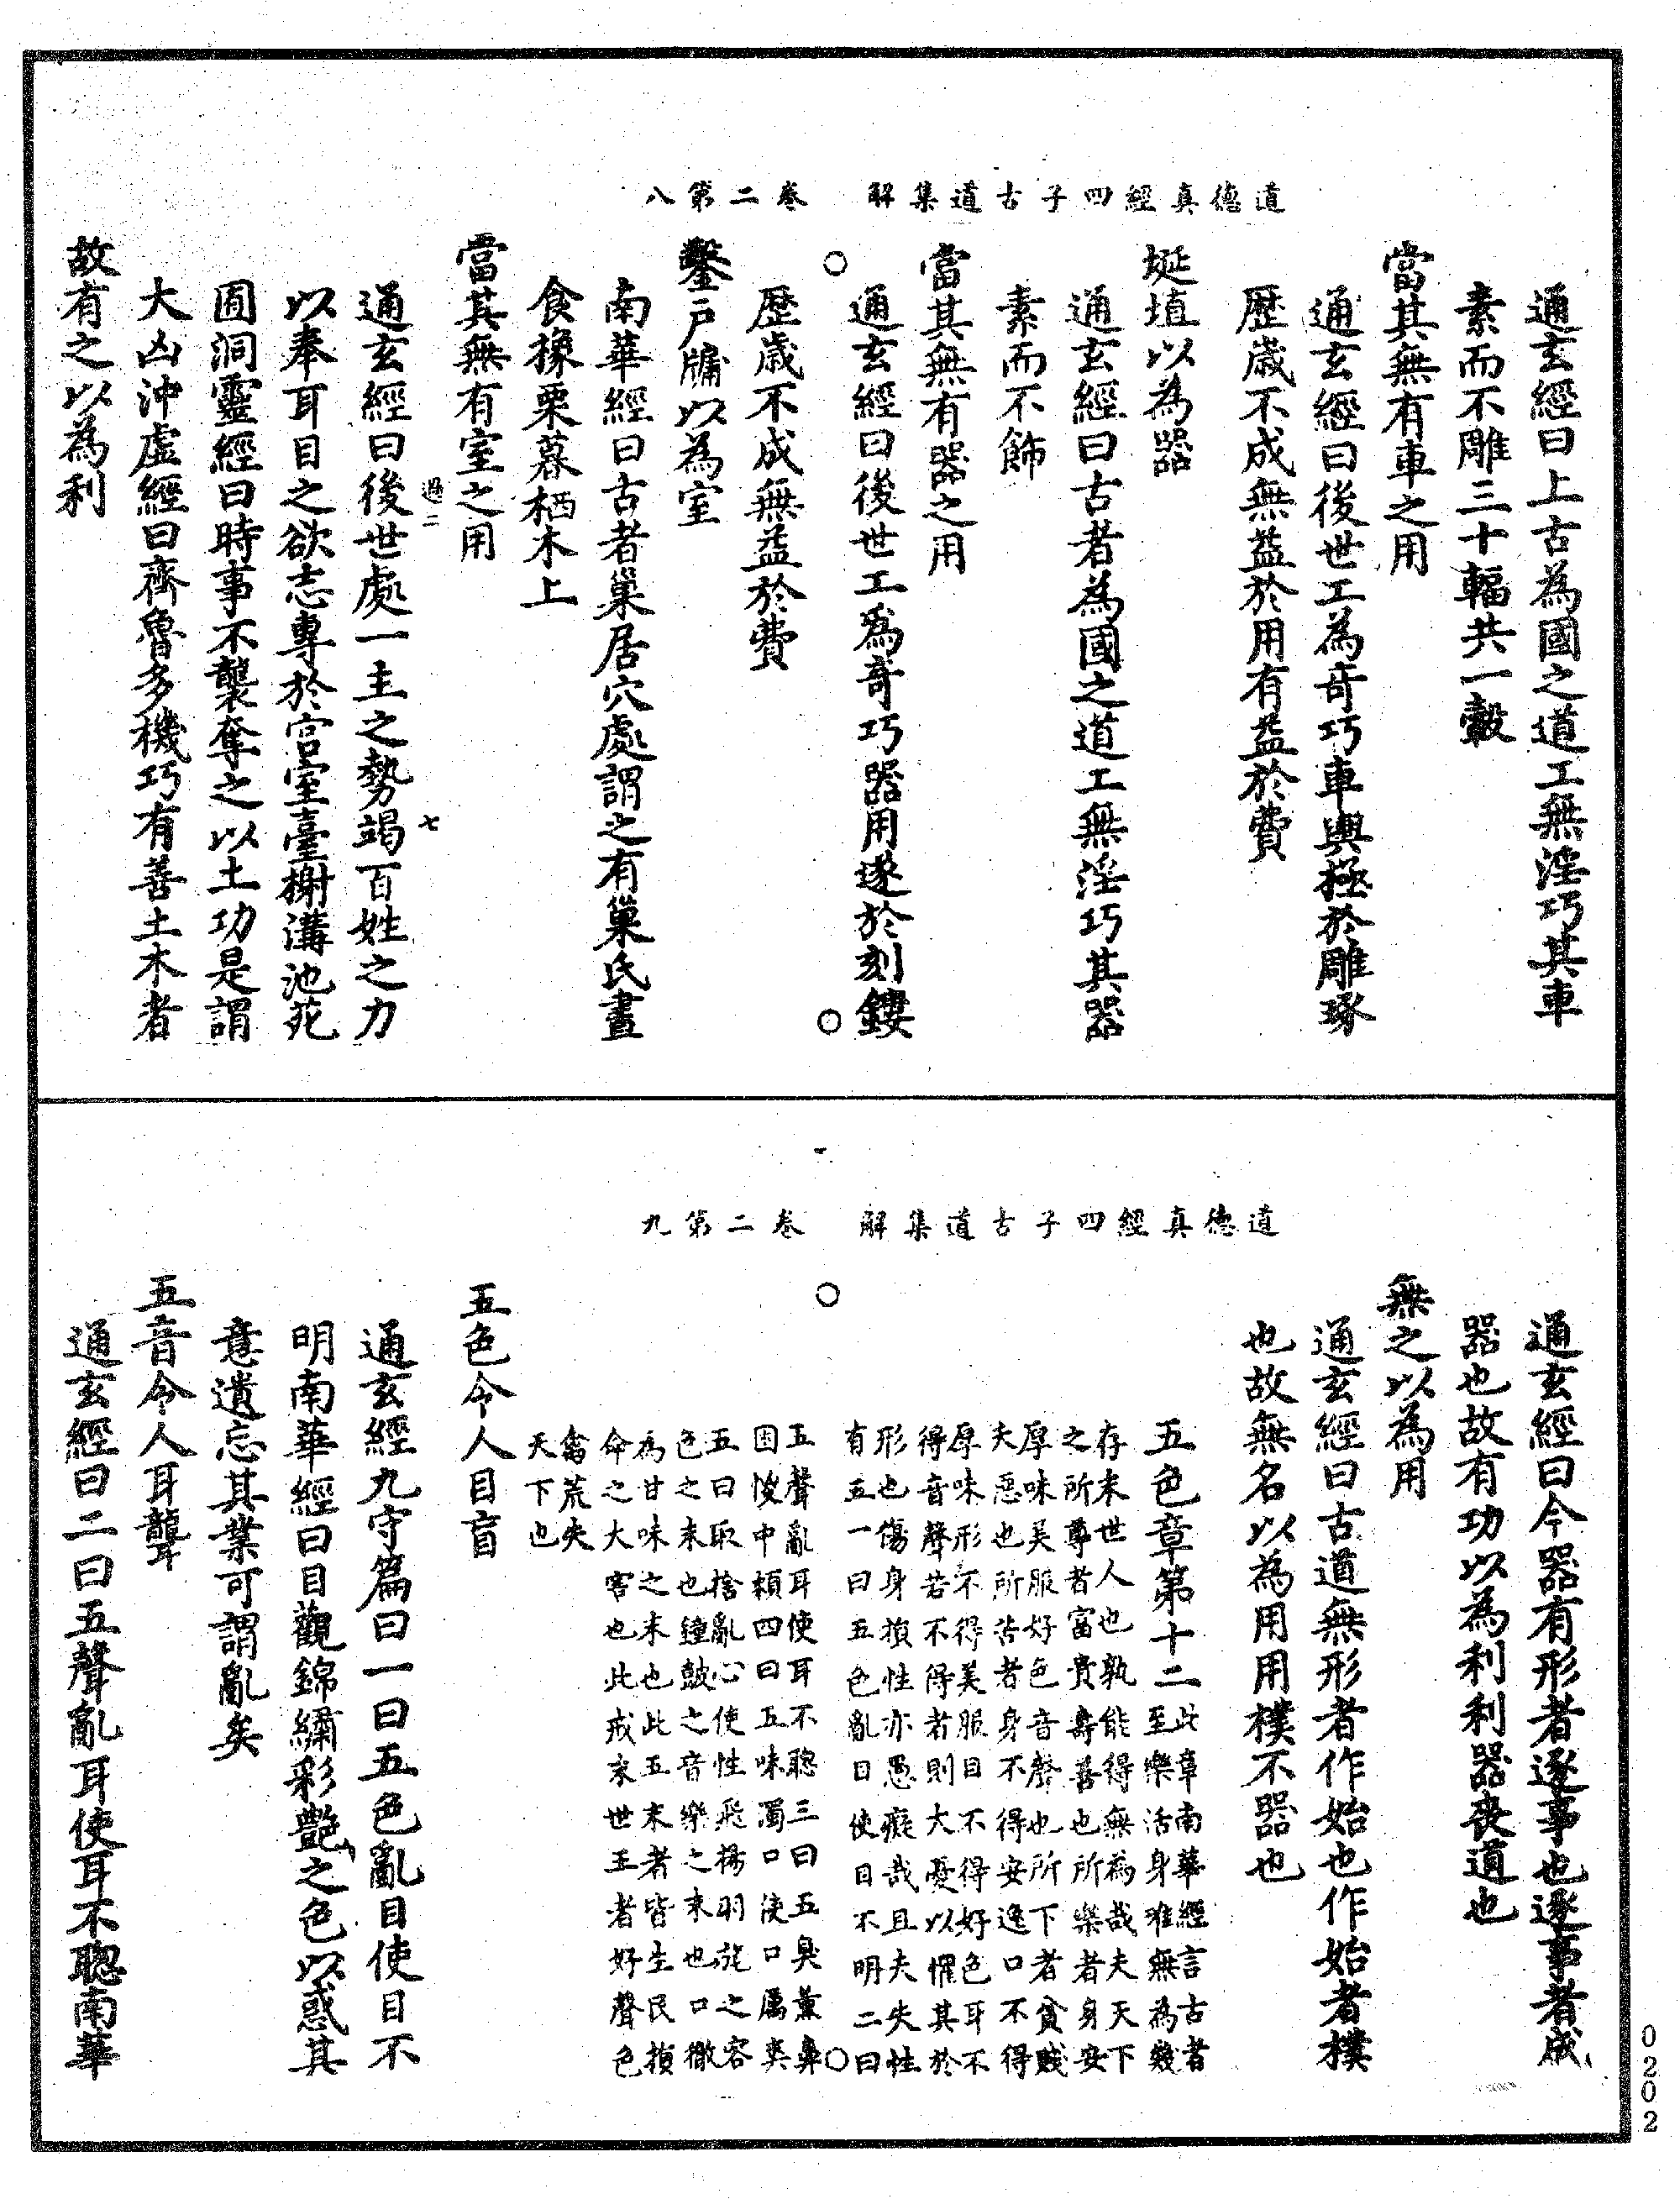 道德真經四子古道集解　卷二第八
通玄經曰上古為國之道工無淫巧其車
素而不雕三十輻共一轂
當其無有車之用
通玄經曰後世工為奇巧車輿極於雕琢
歷歲不成無益於用有益於費
埏埴以為器
通玄經曰古者為國之道工無淫巧其器
素而不飾
當其無有器之用
通玄經曰後世工為奇巧器用遂於刻鏤
歷歲不成無益於費
鑿戶牖以為室
南華經曰古者巢居穴處謂之有巢氏晝
食橡栗暮栖木上
當其無有室之用
過二　七
通玄經曰後世處一主之勢竭百姓之力
以奉耳目之欲志專於宮室臺榭溝池苑
囿洞靈經曰時事不襲奪之以土功是謂
大凶沖虛經曰齊魯多機巧有善土木者
故有之以為利
道德真經四子古道集解　卷二第九
通玄經曰今器有形者遂事也遂事者成
器也故有功以為利利器喪道也
無之以為用
通玄經曰古道無形者作始也作始者樸
也故無名以為用用樸不器也
五色章第十二
此章南華經言古者
至樂活身唯無為幾
存末世人也孰能得無為哉夫天下
之所尊者富貴壽善也所樂者身安
厚味美服好色音聲也所下者貧賤
夭惡也所苦者身不得安逸口不得
厚味形不得美服目不得好色耳不
得音聲若不得者則大憂以懼其於
形也傷身損性亦愚癡哉且夫失性
有五一曰五色亂目使目不明二曰
五聲亂耳使耳不聰三曰五臭薰鼻
困惾中顙四曰五味濁口使口厲爽
五曰取捨亂心使性飛揚羽旄之容
色之末也鐘鼓之音樂之末也口徹
為甘味之末也此五末者皆生民損
命之大害也此戒末世王者好聲色
禽荒失
天下也
五色令人目盲
通玄經九守篇曰一曰五色亂目使目不
明南華經曰目觀錦繡彩艷之色以惑其
意遺忘其業可謂亂矣
五音令人耳聾
通玄經曰二曰五聲亂耳使耳不聰南華
0202